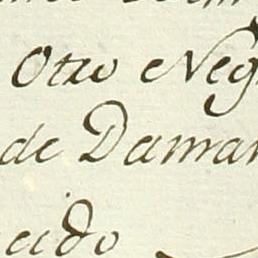 Otro Neg
de Damar
cido